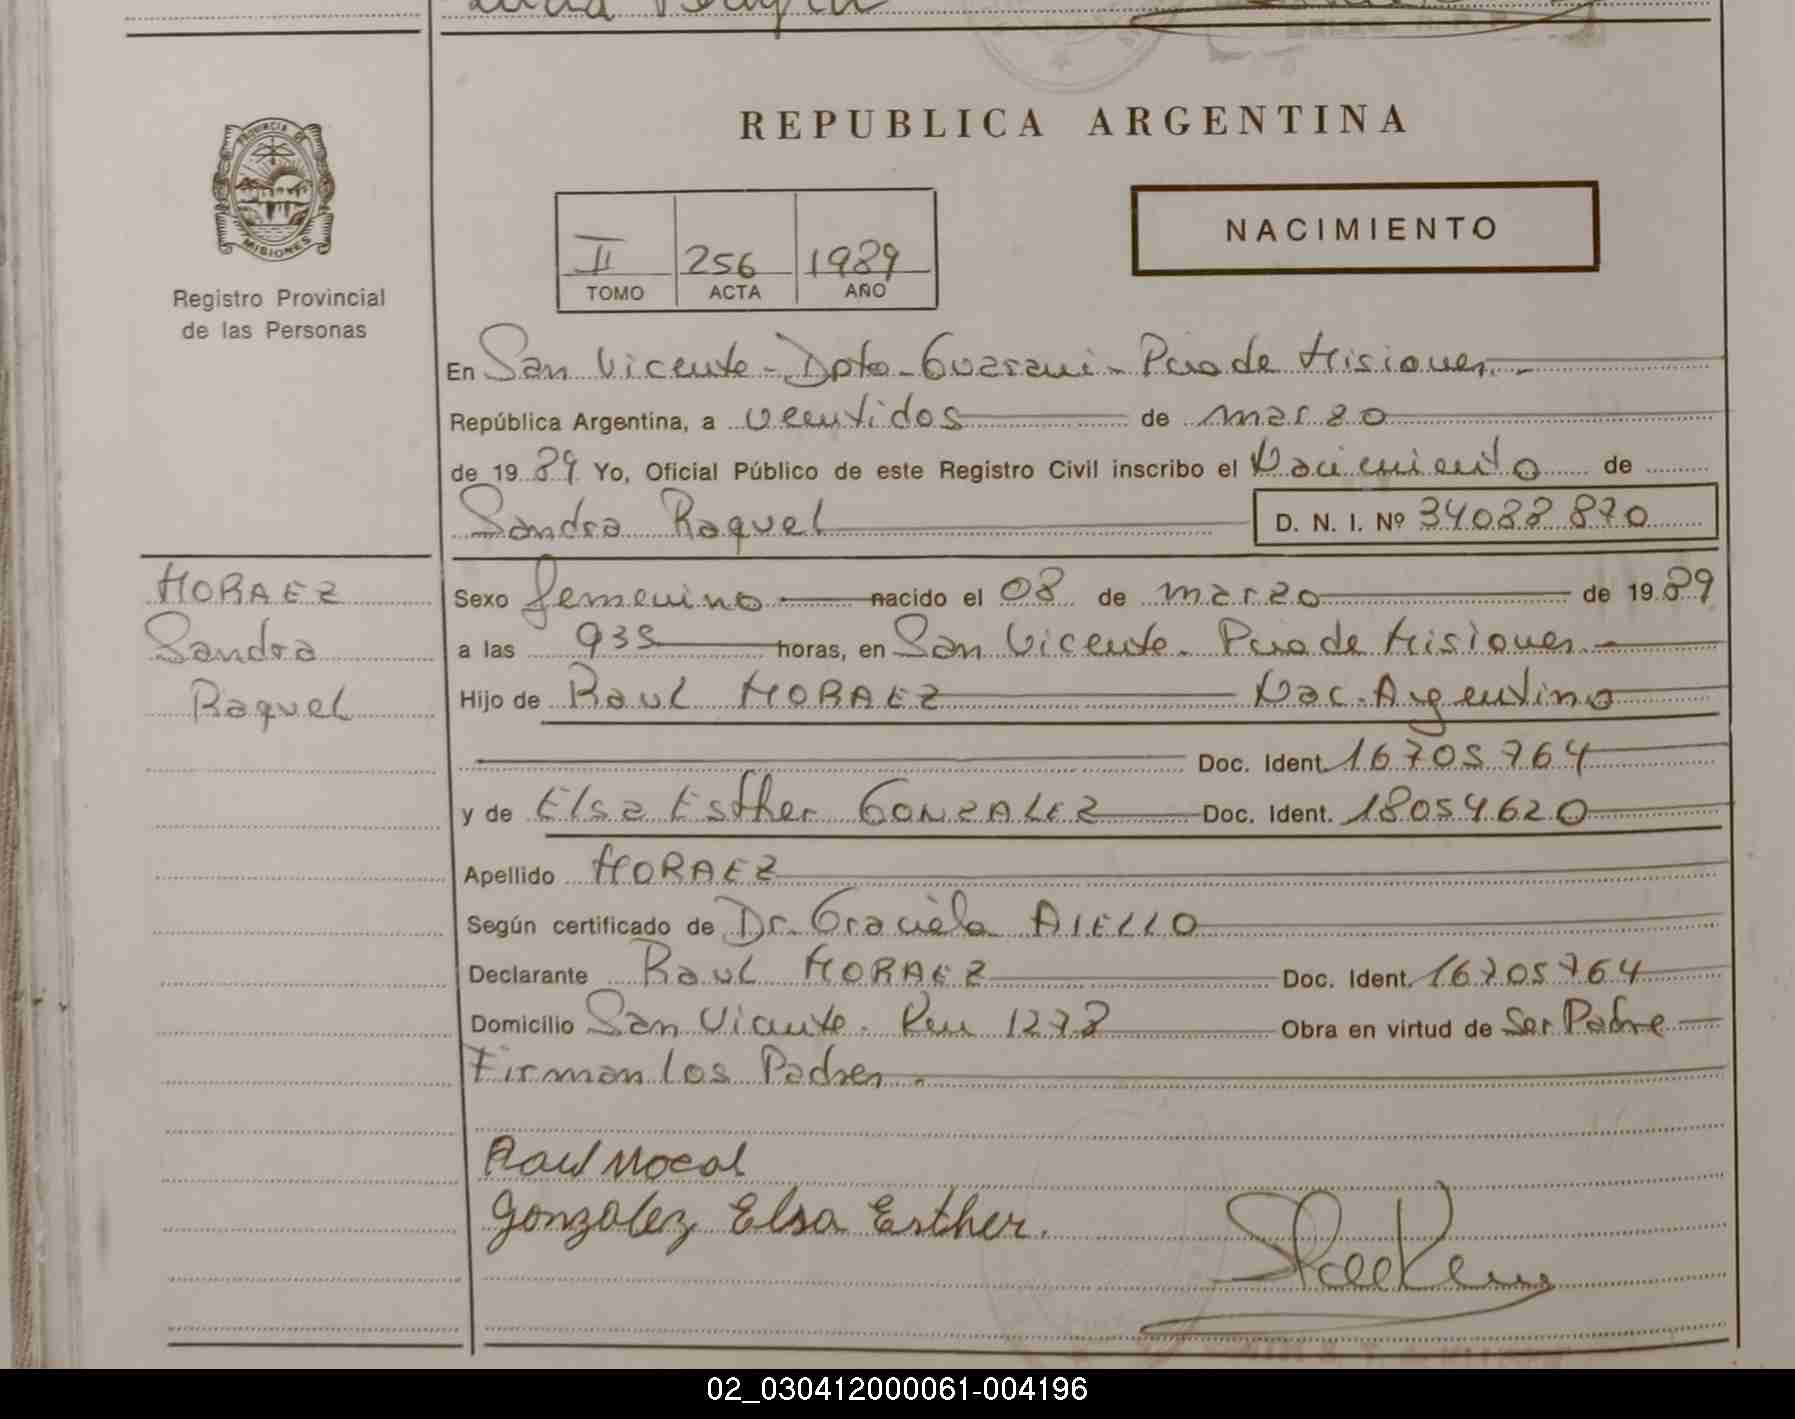 REPUBLICA ARGENTINA
PROVINCIA DE
MISIONES
Registro Provincial
de las Personas
NACIMIENTO
II 256 1989
TOMO ACTA AÑO
En San Vicente - Dpto - Guarani - Pcia de Misiones. -
República Argentina, a veentidos de marzo
de 1989 Yo, Oficial Público de este Registro Civil inscribo el Nacimiento de
Sandra Raquel D. N. I. Nº 34088870
MORAEZ
Sandra
Raquel
Sexo femenino nacido el 08 de marzo de 1989
a las 935 horas, en San Vicente. Pcia de Misiones. -
Hijo de Raul MORAEZ Nac. Argentino
Doc. Ident. 16705764
y de Elsa Esther GONZALEZ Doc. Ident. 18054620
Apellido MORAEZ
Según certificado de Dr. Graciela AIELLO
Declarante Raul MORAEZ Doc. Ident. 16705764
Domicilio San Vicente. 1278 Obra en virtud de Ser Padre -
Firman los Padres.
Raul
Gonzalez Elsa Esther.
02_030412000061-004196